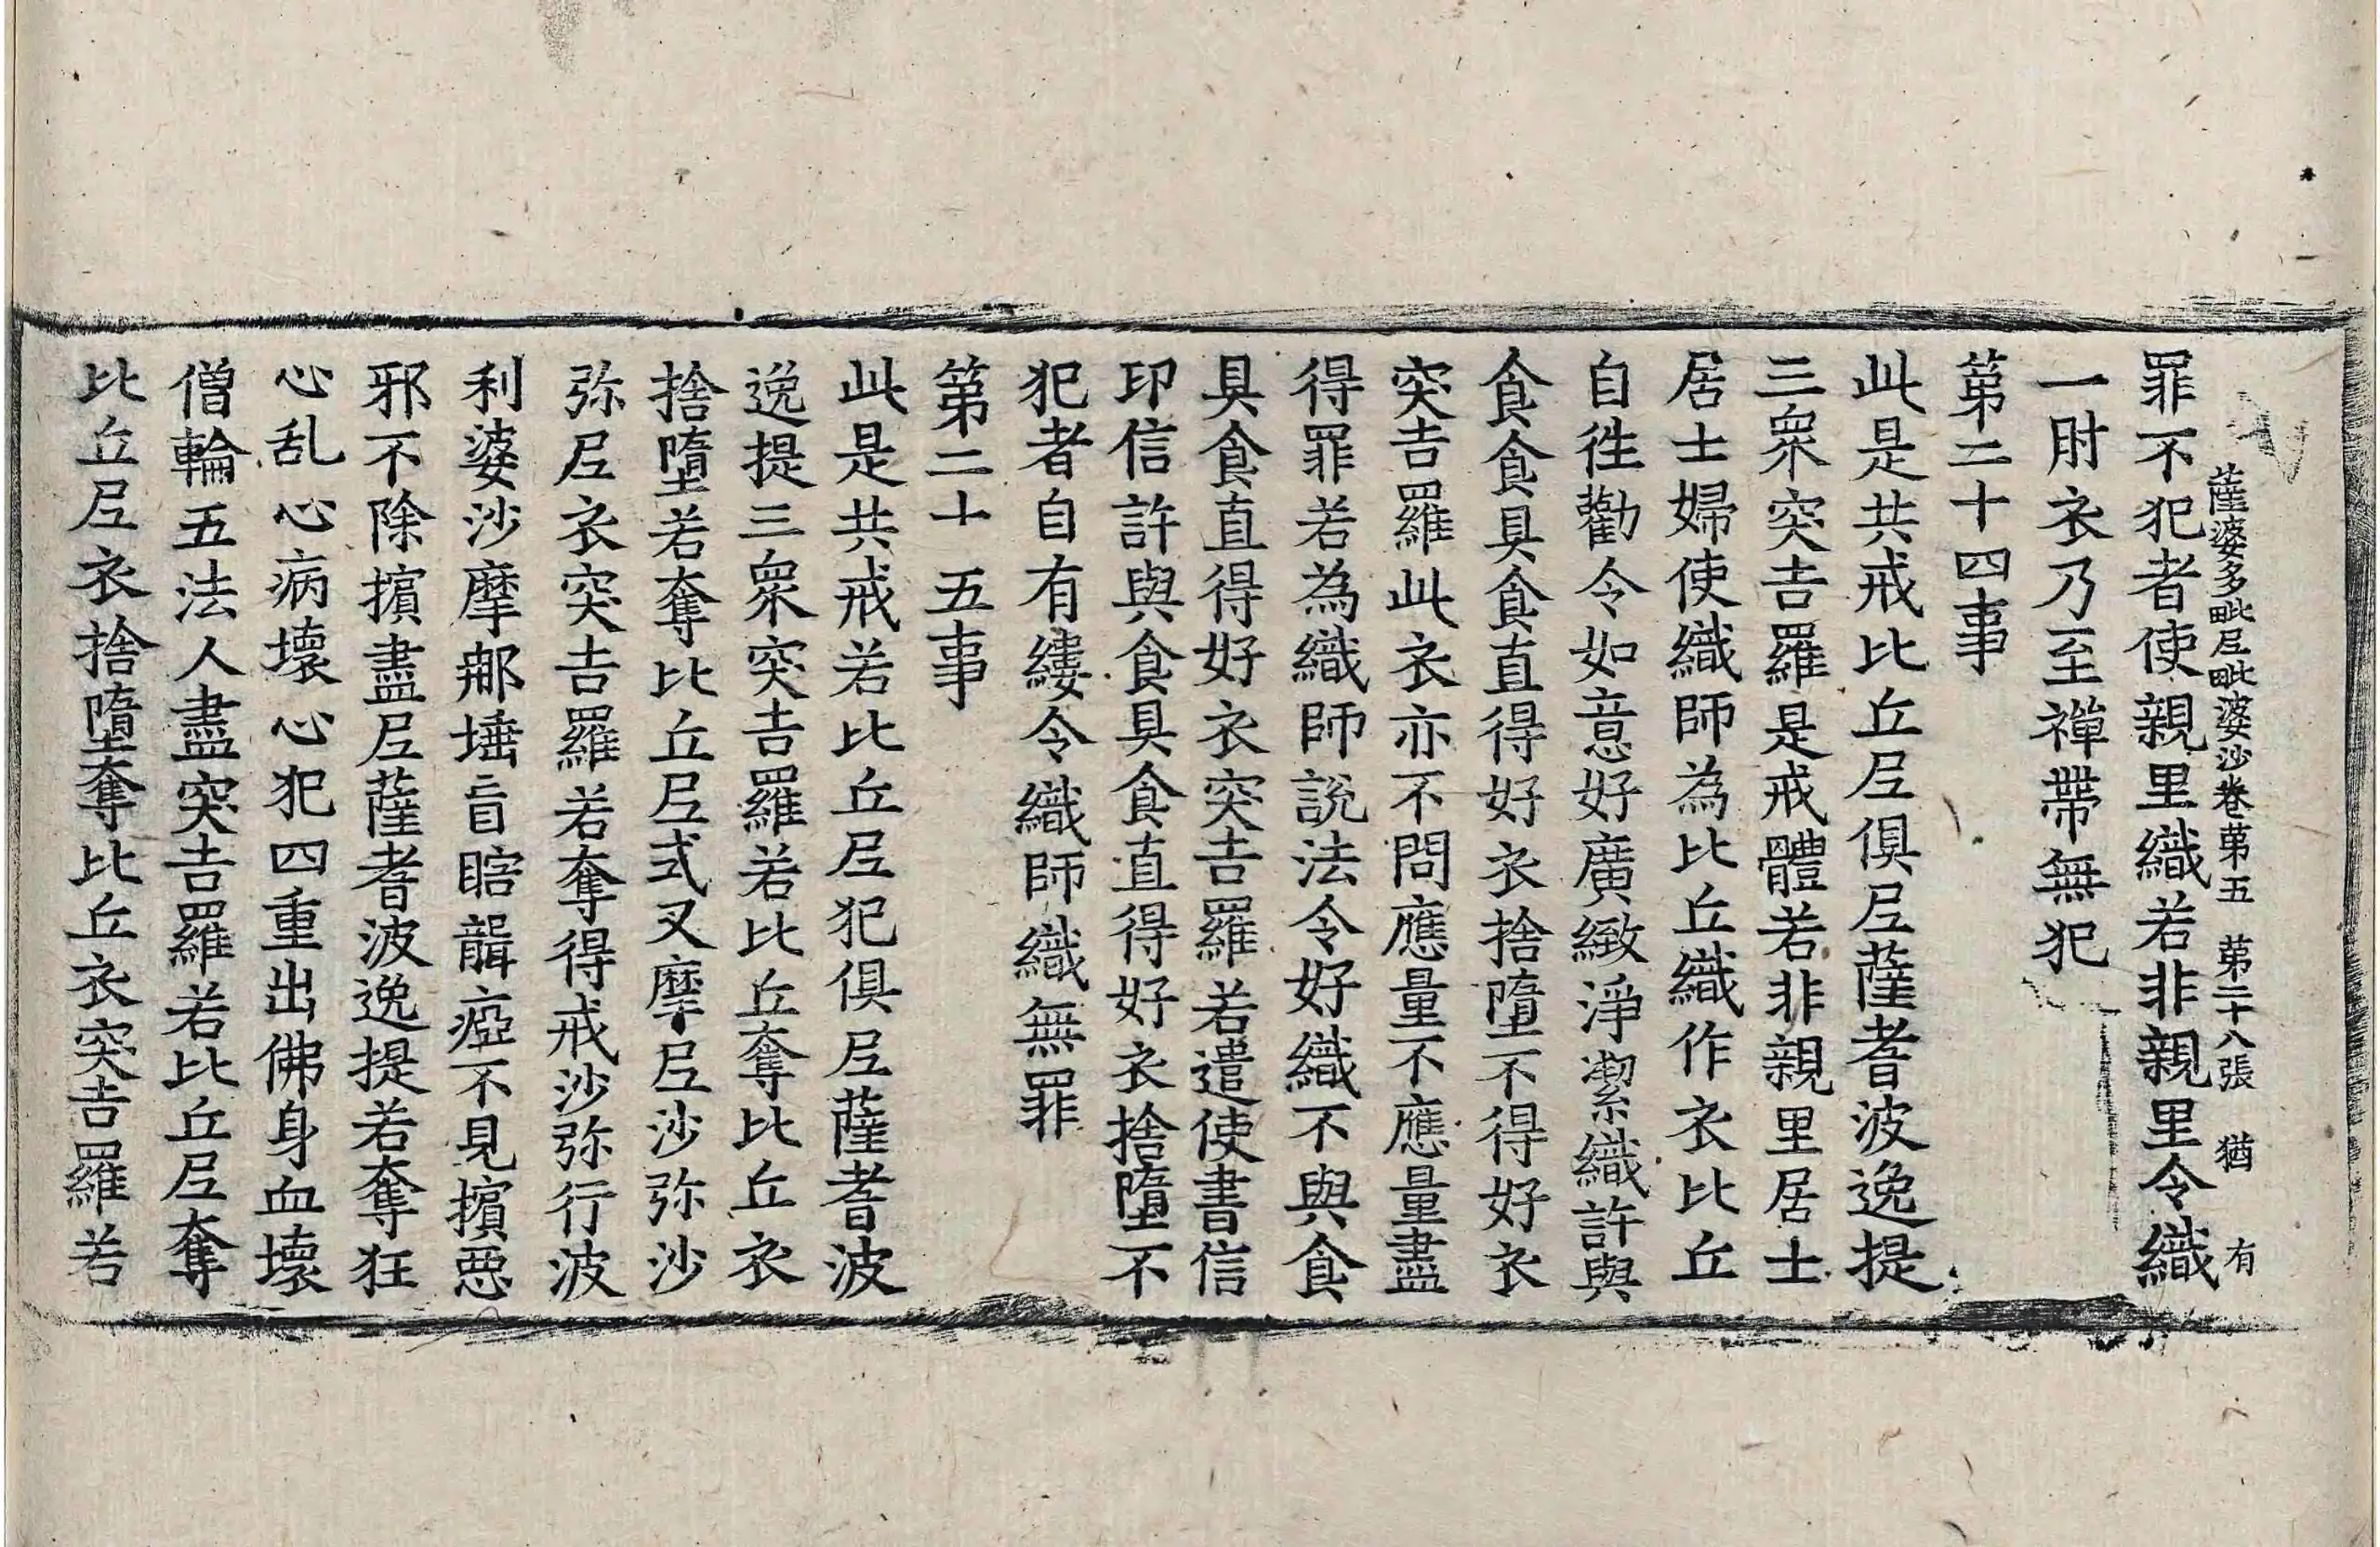 薩婆多毗尼毗婆沙卷第五　第二十八張　猶　有
罪不犯者使親里織若非親里令織
一肘衣乃至禪帶無犯
第二十四事
此是共戒比丘尼俱尼薩耆波逸提
三眾突吉羅是戒體若非親里居士
居士婦使織師為比丘織作衣比丘
自往勸令如意好廣緻淨潔織許與
食食具食直得好衣捨墮不得好衣
突吉羅此衣亦不問應量不應量盡
得罪若為織師說法令好織不與食
具食直得好衣突吉羅若遣使書信
印信許與食具食直得好衣捨墮不
犯者自有縷令織師織無罪
第二十五事
此是共戒若比丘尼犯俱尼薩耆波
逸提三眾突吉羅若比丘奪比丘衣
捨墮若奪比丘尼式叉摩尼沙弥沙
弥尼衣突吉羅若奪得戒沙弥行波
利婆沙摩𨚗埵盲瞎聾瘂不見擯惡
邪不除擯盡尼薩耆波逸提若奪狂
心乱心病壞心犯四重出佛身血壞
僧輪五法人盡突吉羅若比丘尼奪
比丘尼衣捨墮奪比丘衣突吉羅若